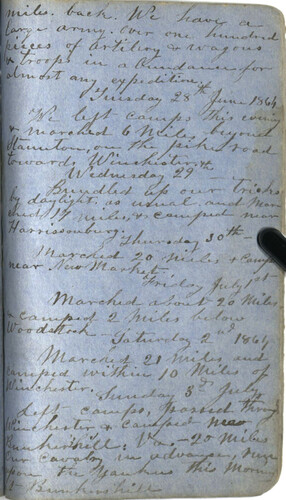 miles. back. We have a
large army. over one hundred
pieces of artilery & wagons
& troops in abundance for
almost any expedition.
Tuesday 28th June 1864
We left camps this evning
& marched 6 Miles beyond
Staunton, on the pike road
towards Winchester.
Wednesday 29th
Bundled up our tricks
by daylight, as usual, and Mar
ched 17 miles, & camped near
Harrisonburg.
Thursday 30th
Marched 20 miles & camp
near New Market.
Friday July 1st
Marched about 20 Miles
& camped 2 Miles below
Woodstock
Saturday 2nd 1864
Marched 21 Miles and
camped within 10 Miles of
Winchester.
Sunday 3d July
Left camps, passed through
Winchester & camped near
Bunkershill. Va. 20 Miles
Our cavalry in advance,
upon the Yankees this Morning
at Bunkershill